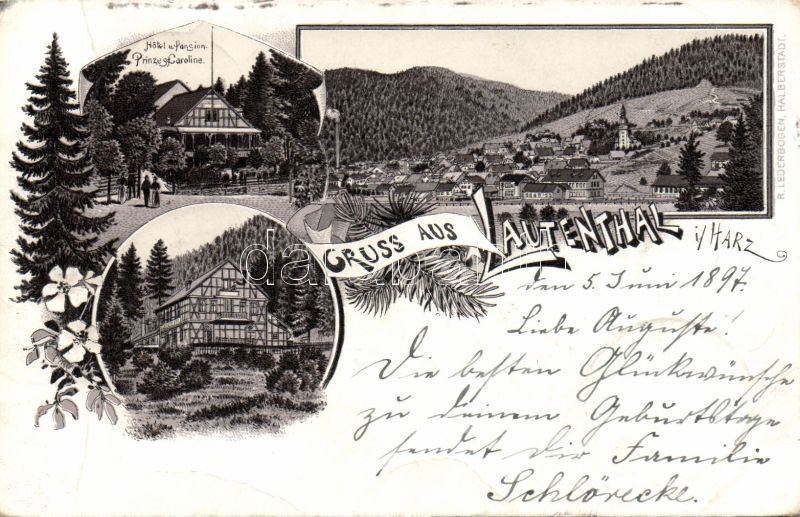 Hôtel u. Pension.
Prinzess Caroline.
GRUSS AUS LAUTENTHAL i/HARZ
den 5. Juni 1897.
Liebe Auguste!
Die besten Glückwünsche
zu deinem Geburtstage
sendet Dir Familie
Schlörecke.
R. LEDERBOGEN, HALBERSTADT.